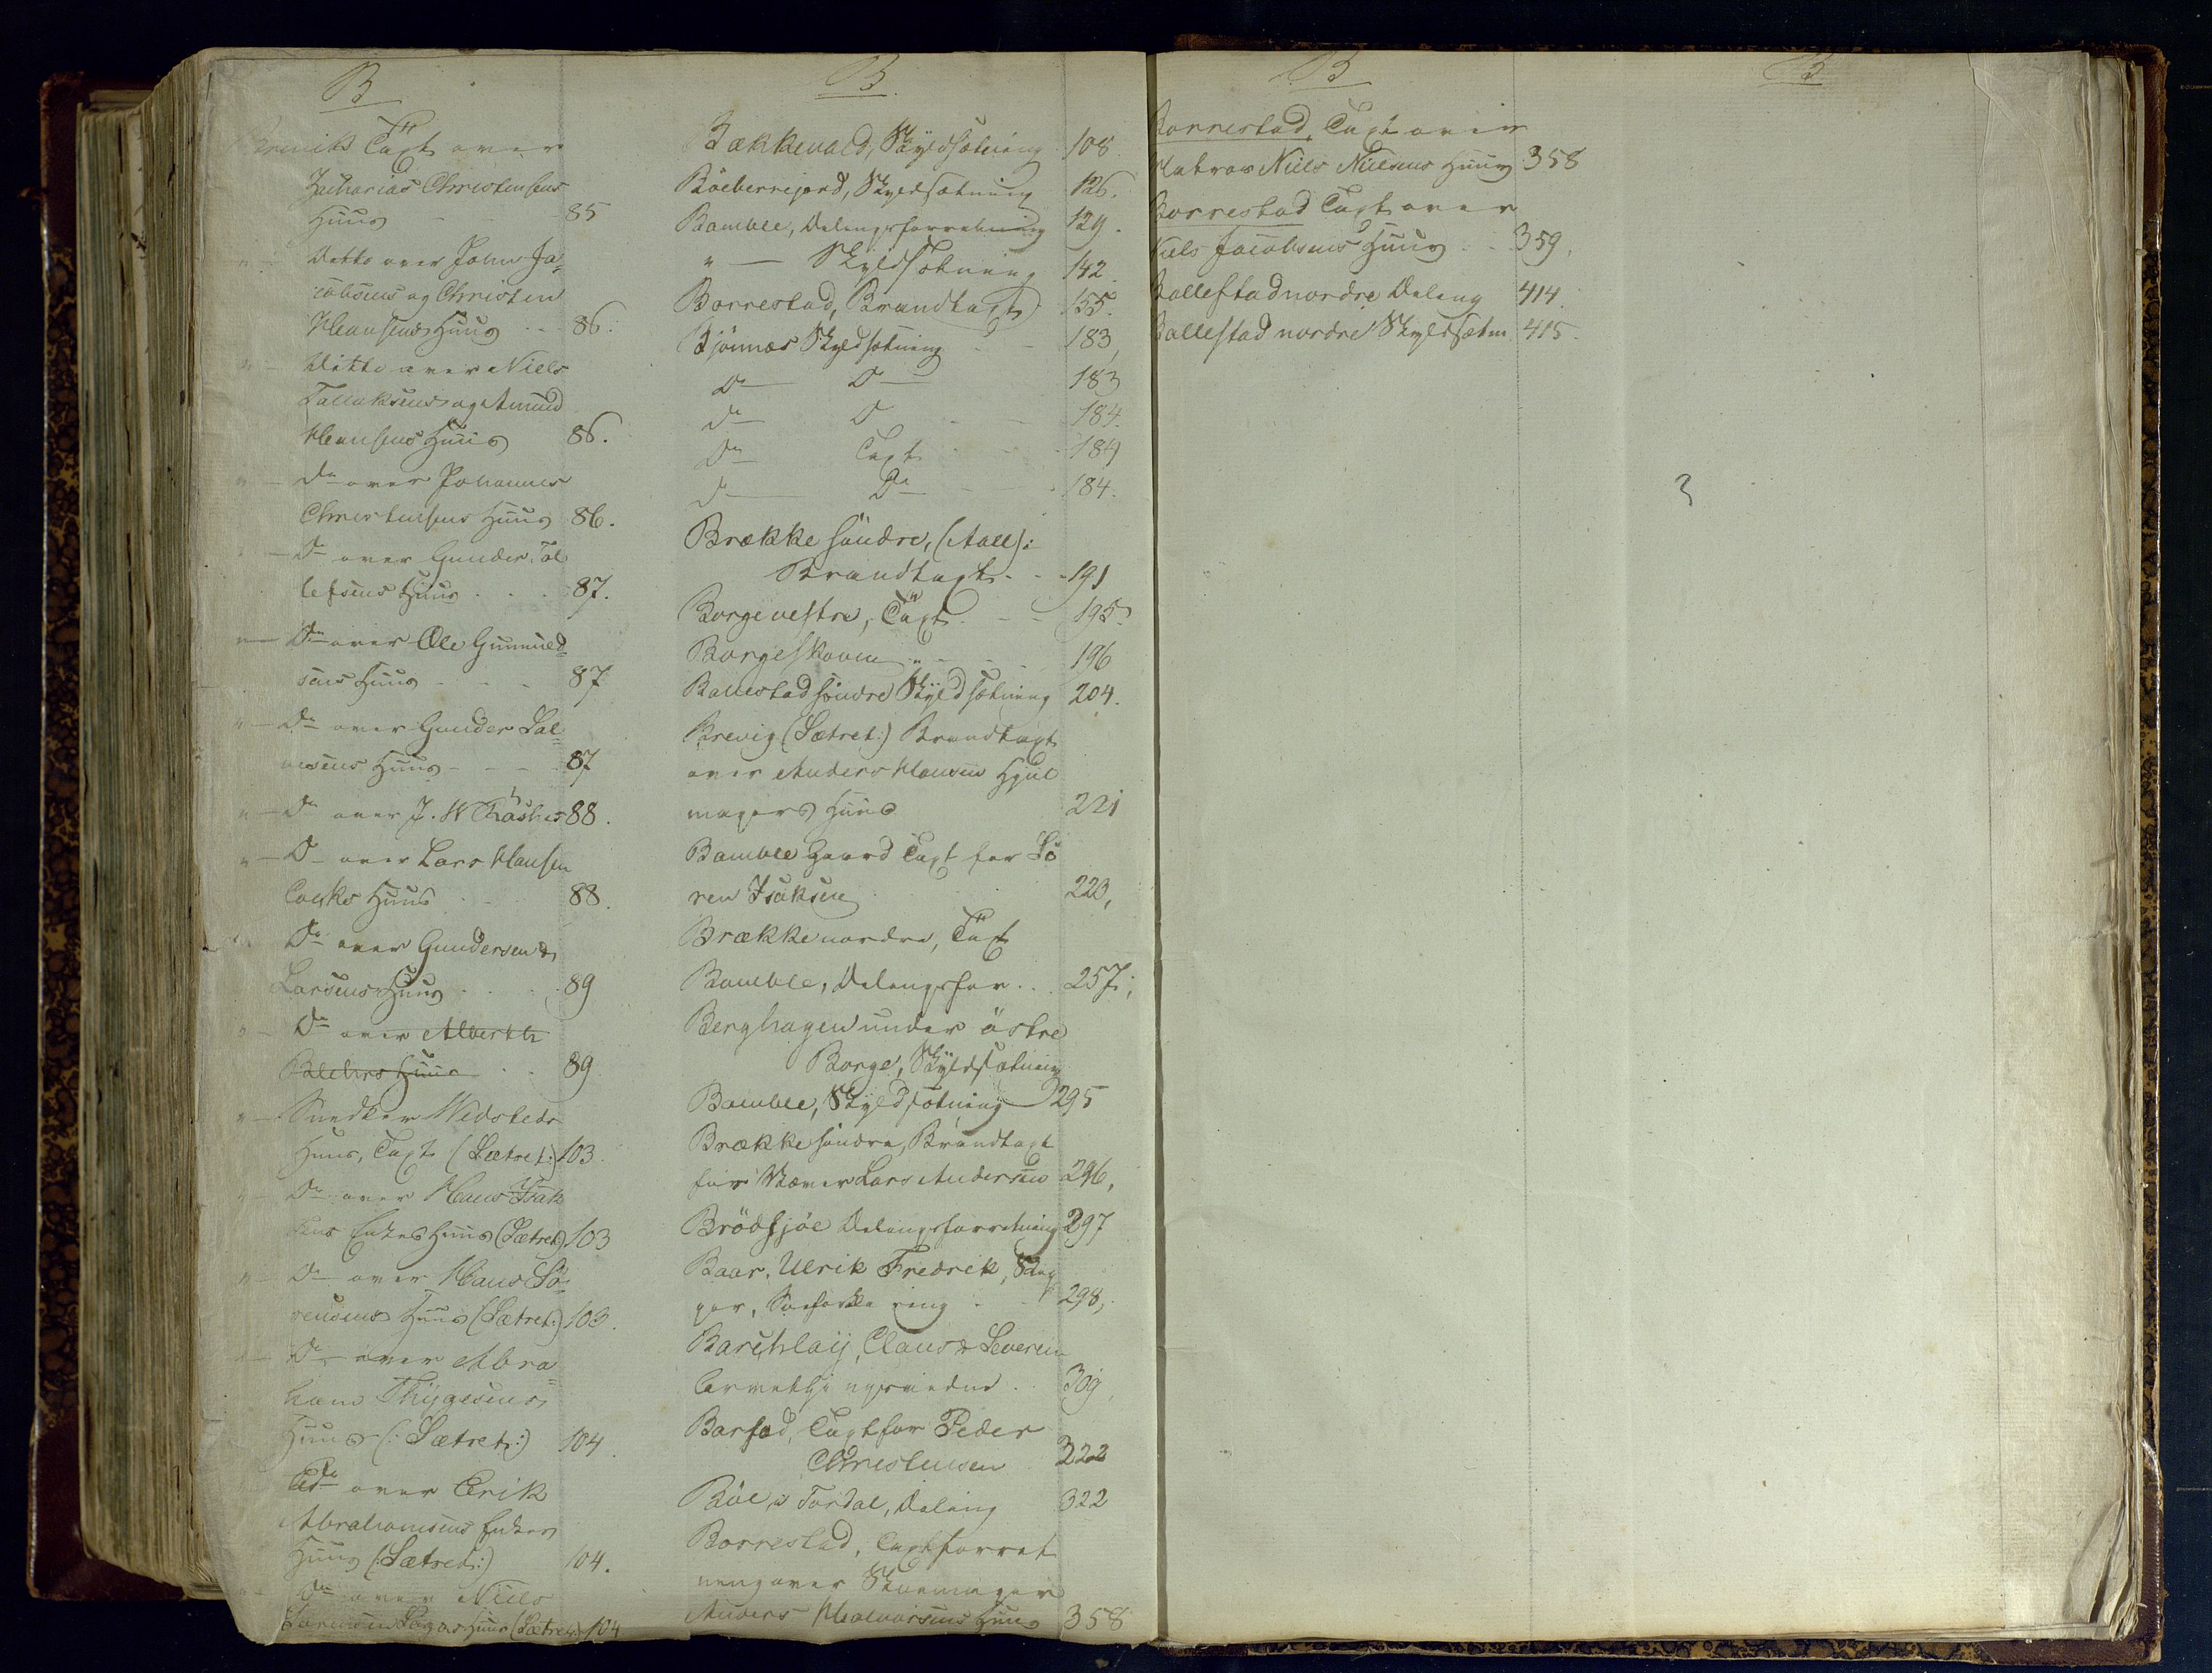 B
Breviks Taxt over
Zacharias Christensens
Huus - - 85
" - Ditto over John Ja=
cobsens og Christen
Hansens Huus - - 86.
" - Ditto over Niels
Tallaksens og Amund
Hansens Huus 86.
" - Do over Johannes
Christensens Huus 86.
" - Do over Gunder Tol
lefsens Huus . . . 87.
" - Do over Ole Gunnuld=
sens Huus - - - 87
" - Do over Gunder Sal=
mosens Huus - - - 87
" - Do over J. W 88.
" - Do over Lars Hansen
Huus - 88.
Do over Gundersen &
Larsens Huus . . . 89
" - Do over Alberth
Blehrs Huus . . 89
" - Snedker Wedsteds
Huus, Taxt (Sætret:) 103.
" - Do over Hans Isak
sens Enkes Huus (Sætret:) 103
" - Do over Hans Sö=
rensens Huus (Sætret:) 103.
" - Do over Abra=
hams Thygesens
Huus (: Sætret:) 104.
Do over Erik
Abrahamsens Enkes
Huus (:Sætret:) 104.
" - Do over Niels
Huus (Sætret:) 104
B.
Bækkevald, Skyldsætning 108.
Böeberrejord, Skyldsætning 126.
Bamble, Delingsforretning 129.
" - Skyldsætning 142.
Borrestad, Brandtaxt 155.
Bjönnæs Skyldsætning - - 183,
Do Do 183
do D 184.
Do Taxt - - - 184
d Do - - 184.
Brække söndre, (Aall):
Brandtaxt - - - 191
Borge vestre, Taxt - - 195.
Borgeskoven - - - 196
Ballestad söndre Skyldsætning 204.
Brevig (Sætret:) Brandtaxt
over Anders Hansen Hjul
magers Huus 221
Bamble Gaard Taxt for Sö
ren Isaksen . . . 223,
Brække nordre, Taxt
Bamble, Delingsfor . . . 257,
Berghagen under östre
Borge, Skyldsætning
Bamble, Skyldsætning 295
Brække söndre, Brandtaxt
for Væver Lars Andersen 296,
Brödsjöe Delingsforretning 297
Baar, Ulrik Fredrik, Skip
per, . . 298,
Barchlaij, Claus & Severin
. . 309,
Barsad, Taxt for Peder
Christensen 322
Böe i Tordal, Deling 322
Borrestad, Taxtforret
ning over Skoemager
Anders Halvorsens Huus 358
B
Borrestad, Taxt over
Matros Niels Nielsens Huus 358
Borrestad Taxt over
Niels Jacobsens Huus . . 359,
Ballestad nordre Deling 414.
Ballestad nordre Skyldsætn 415.
B
3